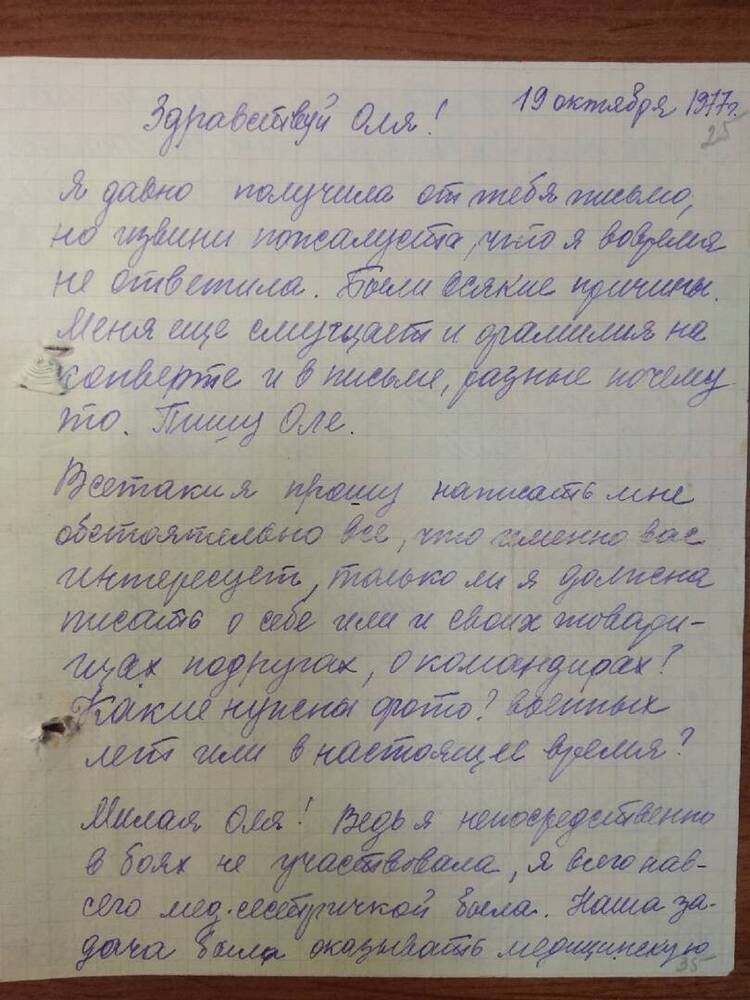 19 октября 1977г.
25
Здравствуй Оля!
Я давно получила от тебя письмо,
но извини пожалуста, что я вовремя
не ответила. Были всякие причины.
Меня еще смущает и фамилия на
конверте и в письме, разные почему
то. Пишу Оле.
Всетаки я прошу написать мне
обстоятельно все, что именно вас
интересует, только ли я должна
писать о себе или и своих товари-
щах подругах, о командирах?
Какие нужны фото? военных
лет или в настоящее время?
Милая Оля! Ведь я непосредственно
в боях не участвовала, я всего нав-
сего мед.сестричкой была. Наша за-
дача была оказывать медицинскую
35